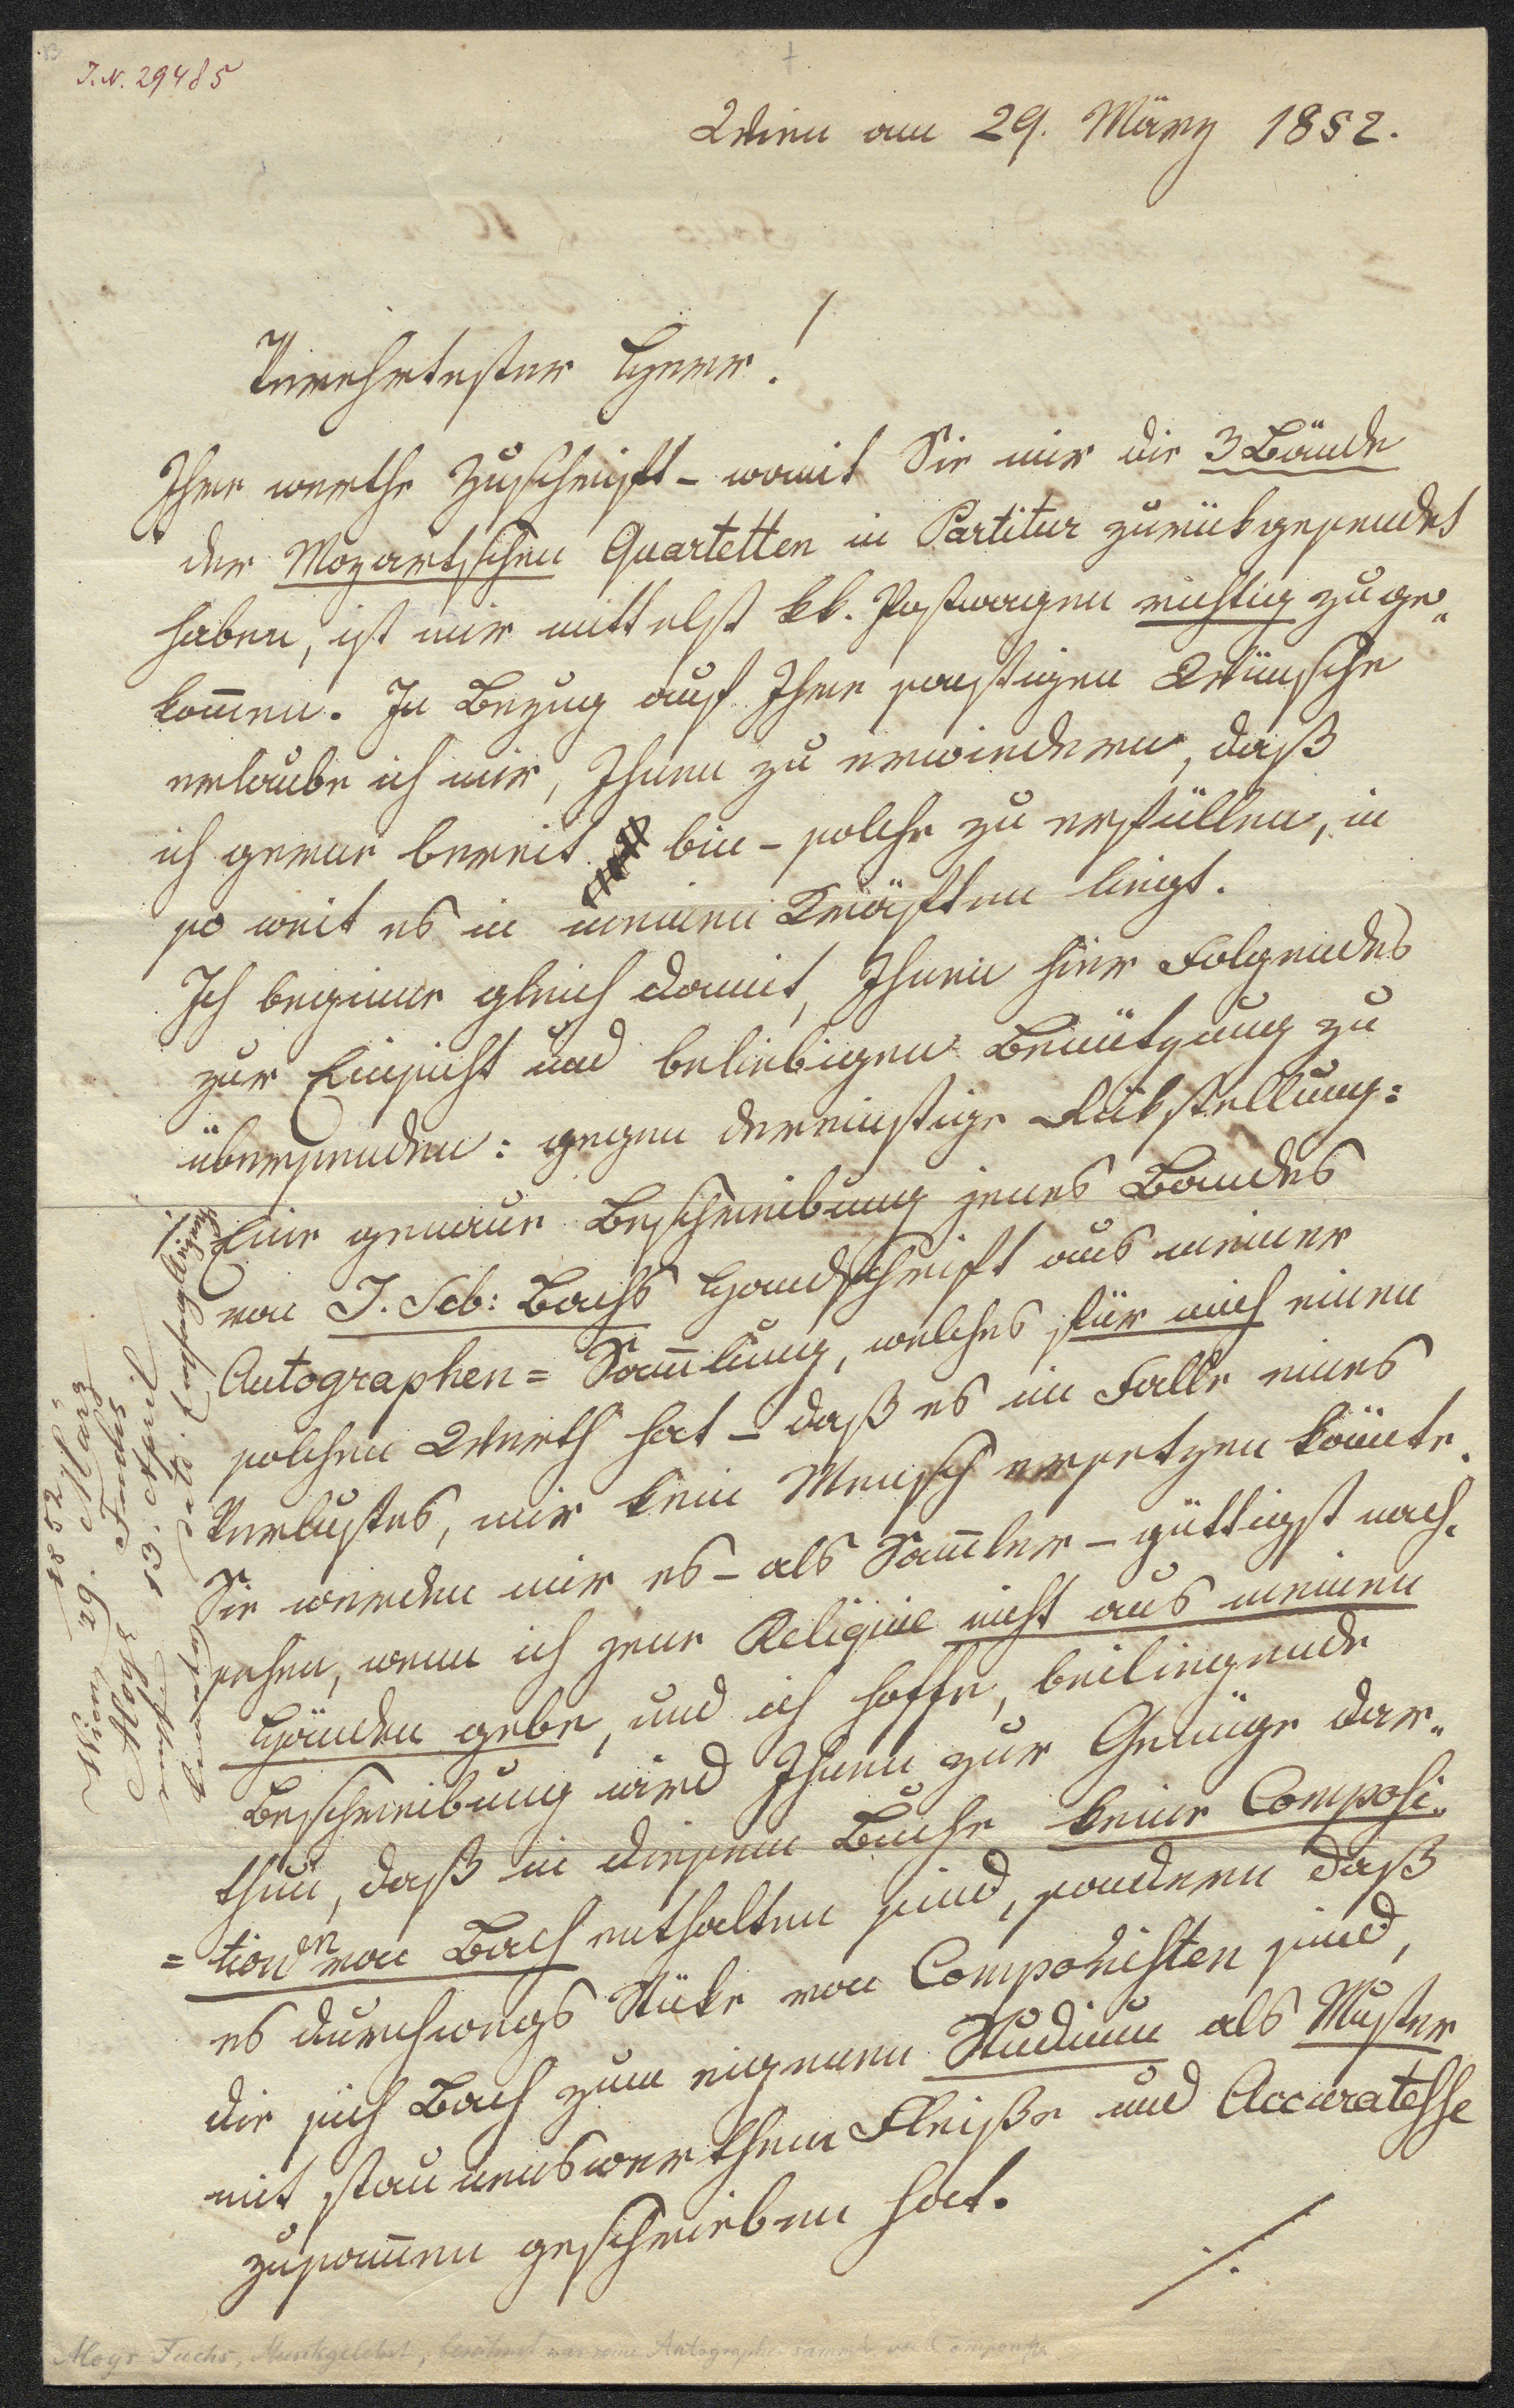 I.N. 29485
Wien am 29. März 1852.
Verehrtester Herr!
Ihre werthe Zuschrift – womit Sie mir die 3 Bände
der Mozartschen Quartetten in Partitur zurükgesendet
haben, ist mir mittelst kk. Postwagen richtig zuge„
kom̄en. In Bezug auf Ihre sonstigen Wünsche
erlaube ich mir, Ihnen zu erwiedern, daß
ich gerne bereit bin – solche zu erfüllen, in
so weit es in meinen Kräften liegt.
Ich beginne gleich damit, Ihnen hier Folgendes
zur Einsicht und beliebigen Benützung zu
übersenden: gegen dereinstige Rükstellung:
1. Eine genaue Beschreibung jenes Bandes
von J. Seb: Bachs Handschrift aus meiner
Autographen = Sam̄lung, welches für mich einen
solchen Werth hat – daß es im Falle eines
Verlustes, mir kein Mensch ersetzen könnte.
Sie werden mir es – als Sam̄ler – güttigst nach„
sehen, wenn ich jene Reliquie nicht aus meinen
Händen gebe, und ich hoffe, beiliegende
Beschreibung wird Ihnen zur Genüge dar„
thun, daß in diesem Buche keine Composi„
= tionen von Bach enthalten sind, sondern daß
es durchwegs Stüke von Componisten sind,
die sich Bach zum eigenen Studium als Muster
mit staunenswerthem Fleiße und Accuratesse
zusam̄en geschrieben hat.
./.
1852
Wien 29. März
Aloys Fuchs
13. April
Aloys Fuchs, Musikgelehrt, berühmt war seine Autographensammlg von Componisten